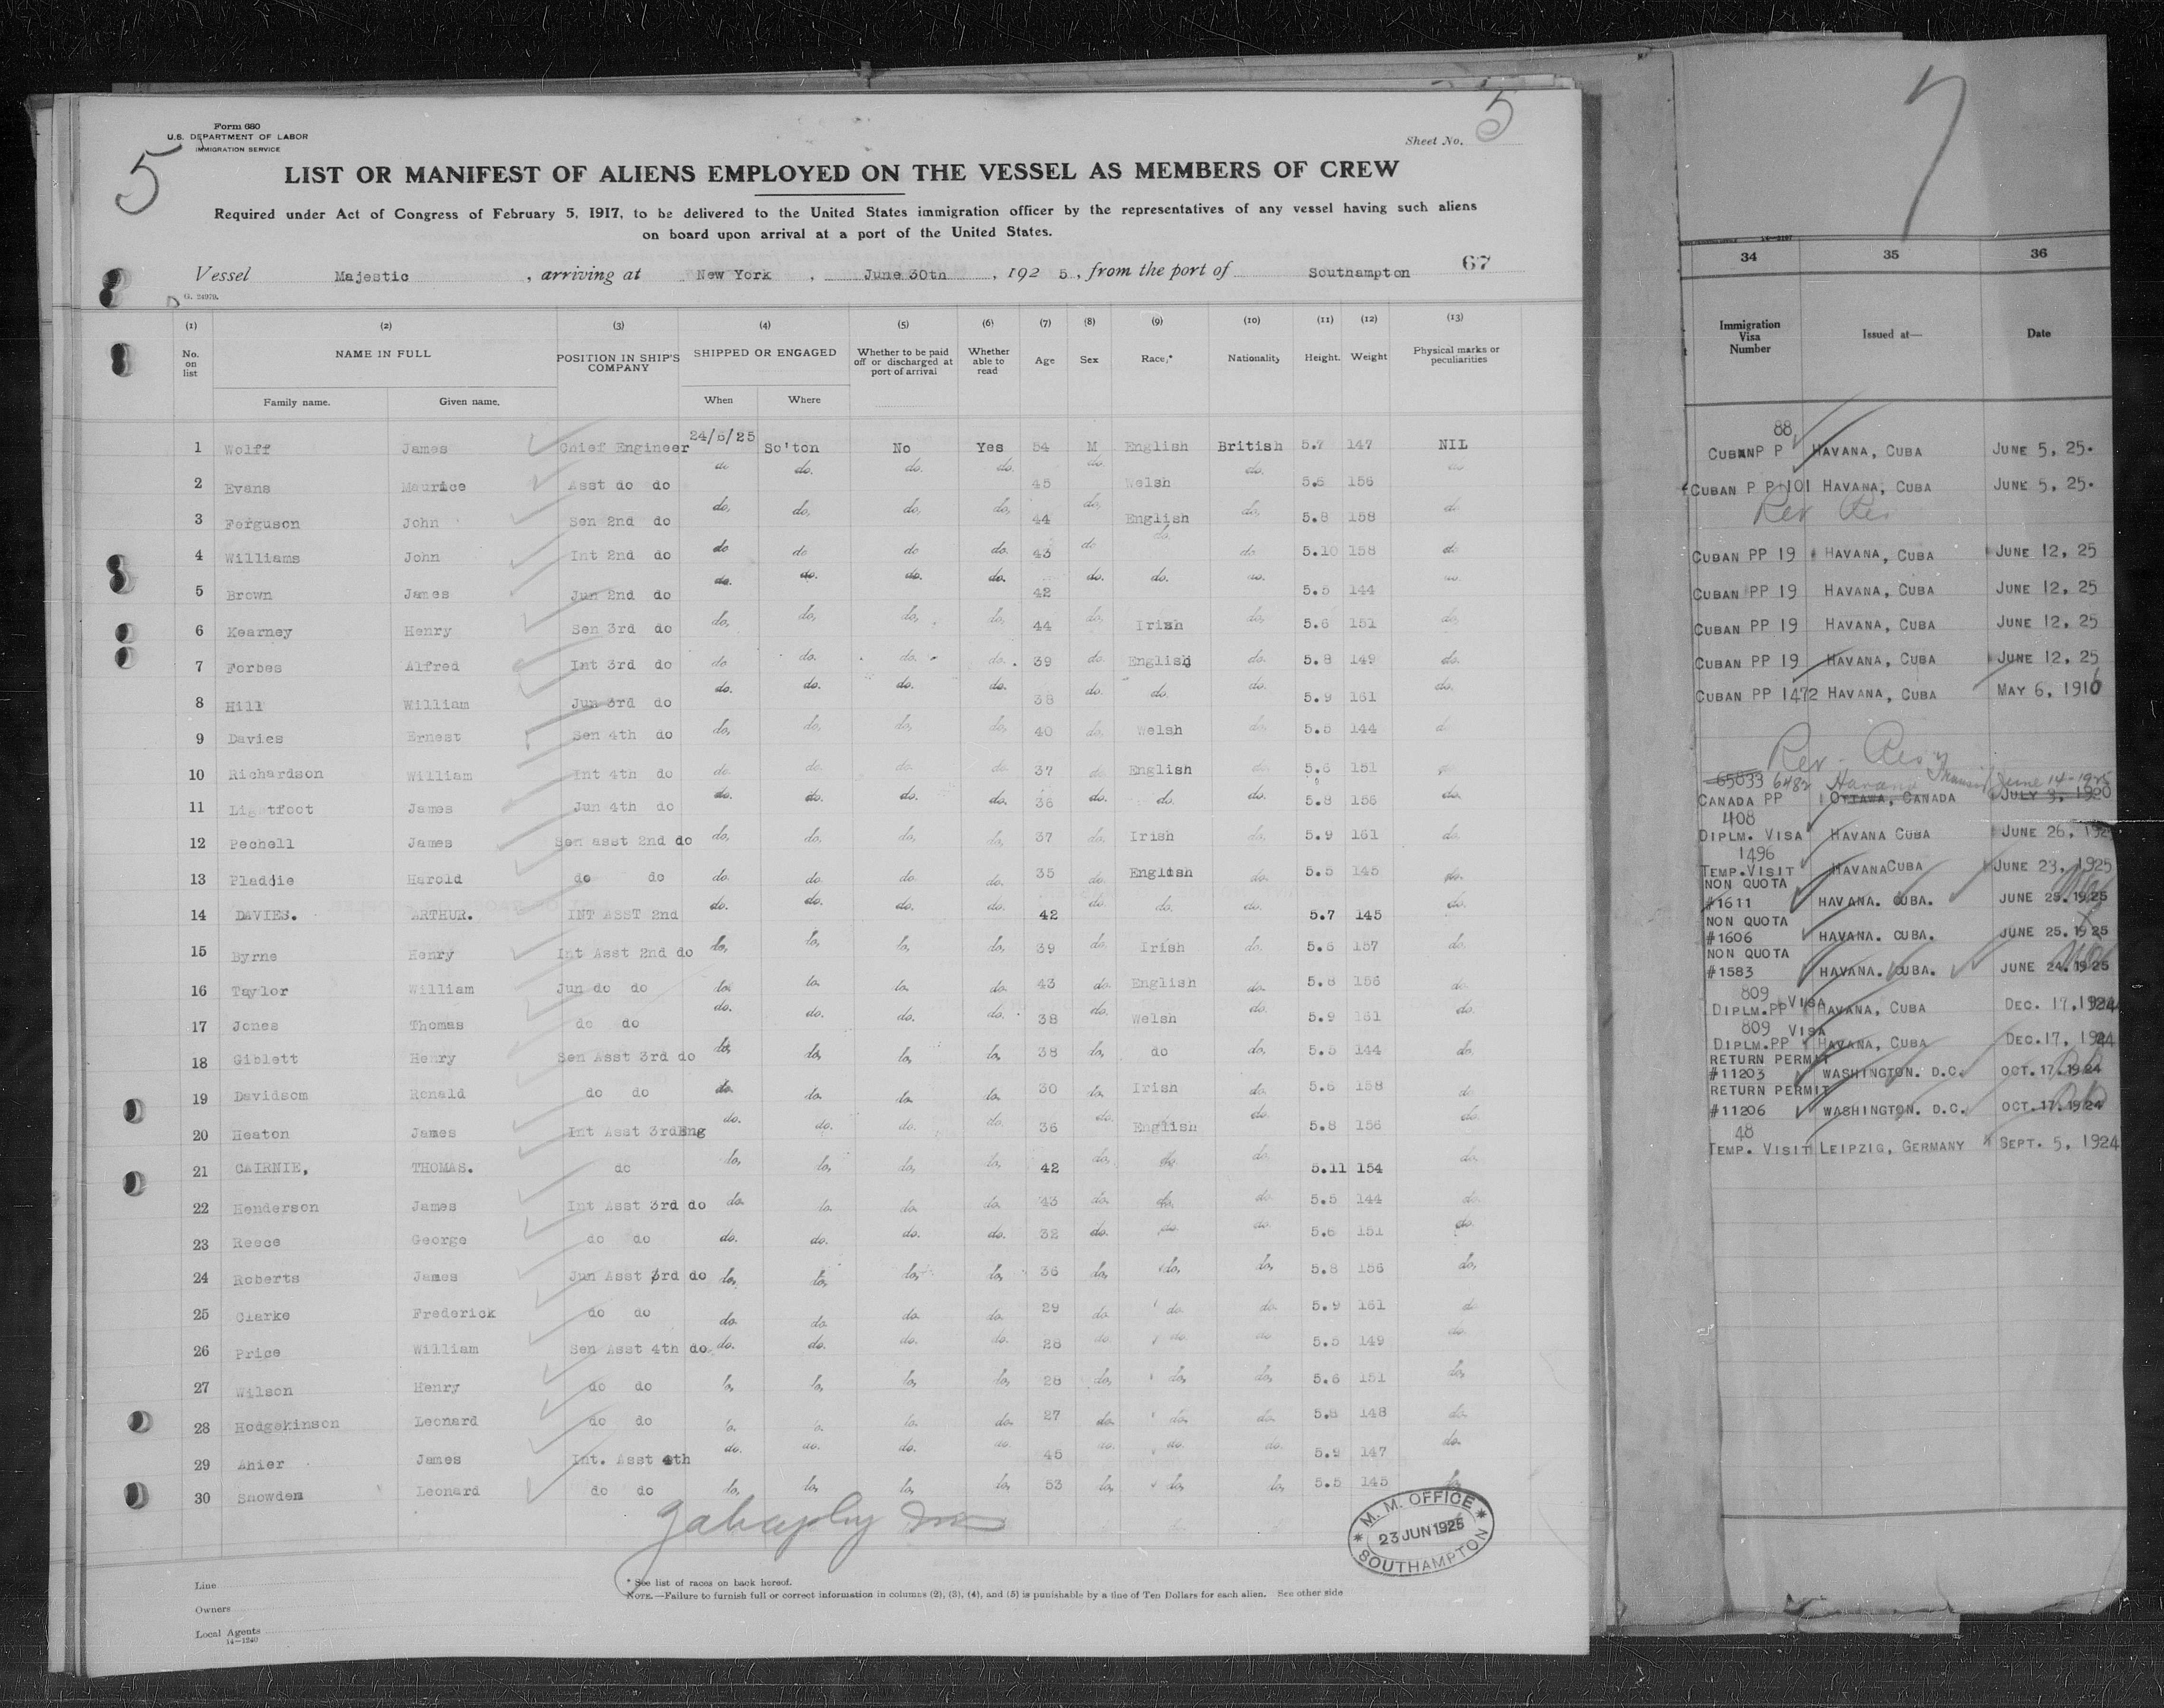 Form 680
U.S. DEPARTMENT OF LABOR
IMMIGRATION SERVICE
5
Sheet No. 5
LIST OR MANIFEST OF ALIENS EMPLOYED ON THE VESSEL AS MEMBERS OF CREW
Required under Act of Congress of February 5, 1917, to be delivered to the United States immigration officer by the representatives of any vessel having such aliens
on board upon arrival at a port of the United States.
Vessel Majestic, arriving at New York, June 30th, 1925, from the port of Southampton 67
G. 24979.
(1) (2) (3) (4) (5) (6) (7) (8) (9) (10) (11) (12) (13)
No. on list NAME IN FULL POSITION IN SHIP'S COMPANY SHIPPED OR ENGAGED Whether to be paid off or discharged at port of arrival Whether able to read Age Sex Race,* Nationality Height. Weight Physical marks or peculiarities
Family name. Given name. When Where
1 Wolff James Chief Engineer 24/5/25 So'ton No Yes 54 M English British 5.7 147 NIL
2 Evans Maurice Asst do do do do. do. do. 45 do. Welsh do. 5.6 156 do.
3 Ferguson John Sen 2nd do do, do, do, do, 44 do, English do, 5.8 158 do
4 Williams John Int 2nd do do do do do. 43 do do. do 5.10 158 do
5 Brown James Jun 2nd do do. do. do. do. 42 do. do. do. 5.5 144 do.
6 Kearney Henry Sen 3rd do do, do, do, do, 44 do, Irish do, 5.6 151 do,
7 Forbes Alfred Int 3rd do do do. do. do. 39 do. English do. 5.8 149 do.
8 Hill William Jun 3rd do do. do. do. do. 38 do. do. do. 5.9 161 do.
9 Davies Ernest Sen 4th do do, do, do, do, 40 do, Welsh do, 5.5 144 do
10 Richardson William Int 4th do do. do. do. do. 37 do English do. 5.6 151 do.
11 Lightfoot James Jun 4th do do. do. do. do. 36 do. do. do. 5.8 156 do.
12 Pechell James Sen asst 2nd do do, do, do, do, 37 do, Irish do, 5.9 161 do.
13 Pladdie Harold do do do. do. do. do. 35 do. English do. 5.5 145 do.
14 DAVIES. ARTHUR. INT ASST 2nd do. do. do. do. 42 do. do. do. 5.7 145 do.
15 Byrne Henry Int Asst 2nd do do, do, do, do, 39 do. Irish do. 5.6 157 do.
16 Taylor William Jun do do do. do. do. do. 43 do. English do. 5.8 156 do.
17 Jones Thomas do do do. do. do. do. 38 do. Welsh do. 5.9 161 do.
18 Giblett Henry Sen Asst 3rd do do, do, do, do, 38 do, do do, 5.5 144 do.
19 Davidsom Ronald do do do. do. do. do. 30 do. Irish do. 5.6 158 do
20 Heaton James Int Asst 3rdEng do. do. do. do. 36 do. English do. 5.8 156 do.
21 CAIRNIE, THOMAS. do do, do, do, do, 42 do, do. do. 5.11 154 do.
22 Henderson James Int Asst 3rd do do. do. do. do. 43 do. do. do. 5.5 144 do.
23 Reece George do do do. do. do. do. 32 do. do. do. 5.6 151 do.
24 Roberts James Jun Asst 3rd do do, do, do, do, 36 do, do, do, 5.8 156 do,
25 Clarke Frederick do do do. do. do. do. 29 do. do. do. 5.9 161 do
26 Price William Sen Asst 4th do do. do. do. do. 28 do. do. do 5.5 149 do.
27 Wilson Henry do do do, do, do, do, 28 do, do, do, 5.6 151 do,
28 Hodgekinson Leonard do do do. do. do. do. 27 do. do. do. 5.8 148 do.
29 Ahier James Int. Asst 4th do. do. do. do. 45 do. do. do. 5.9 147 do.
30 Snowden Leonard do do do, do, do, do, 53 do, do, do, 5.5 145 do,
M. M. OFFICE
23 JUN 1925
SOUTHAMPTON
Line
Owners
Local Agents
14—1240
* See list of races on back hereof.
NOTE.—Failure to furnish full or correct information in columns (2), (3), (4), and (5) is punishable by a fine of Ten Dollars for each alien. See other side
7
34 35 36
Immigration Visa Number Issued at— Date
88
CUBAN P P HAVANA, CUBA JUNE 5, 25.
CUBAN P P 101 HAVANA, CUBA JUNE 5, 25.
CUBAN PP 19 HAVANA, CUBA JUNE 12, 25
CUBAN PP 19 HAVANA, CUBA JUNE 12, 25
CUBAN PP 19 HAVANA, CUBA JUNE 12, 25
CUBAN PP 19 HAVANA, CUBA JUNE 12, 25
CUBAN PP 1472 HAVANA, CUBA MAY 6, 1916
65833 6482 Havana Transit June 14-1925
CANADA PP OTTAWA, CANADA JULY 3, 1920
408
DIPLM. VISA HAVANA CUBA JUNE 26, 1925
1496
TEMP.VISIT HAVANACUBA JUNE 23, 1925
NON QUOTA
#1611 HAVANA. CUBA. JUNE 25.1925
NON QUOTA
#1606 HAVANA. CUBA. JUNE 25.1925
NON QUOTA
#1583 HAVANA. CUBA. JUNE 24.1925
809 VISA
DIPLM.PP HAVANA, CUBA DEC. 17,1924
809 VISA
DIPLM.PP HAVANA, CUBA DEC.17, 1924
RETURN PERMIT
#11203 WASHINGTON. D.C. OCT.17.1924
RETURN PERMIT
#11206 WASHINGTON. D.C. OCT.17.1924
48
TEMP. VISIT LEIPZIG, GERMANY SEPT. 5, 1924